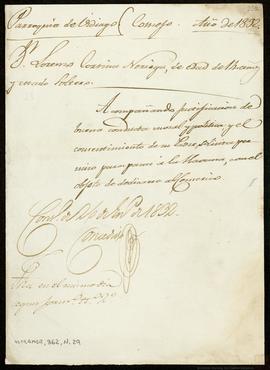 Parroquia de Codiago ( Consejo. Año de 1832.
Dn. Lorenzo Cortina Noriega, de edad de
y estado Soltero.
Acompañando justificacion de
buena conducta moral y politica y el
consentimiento de su Padre, solicita per-
miso para pasar a la Havana, con el
objeto de dedicarse al Comercio.
de 1832.
Concedido
en el mismo dia
ULTRAMAR, 362, N.29